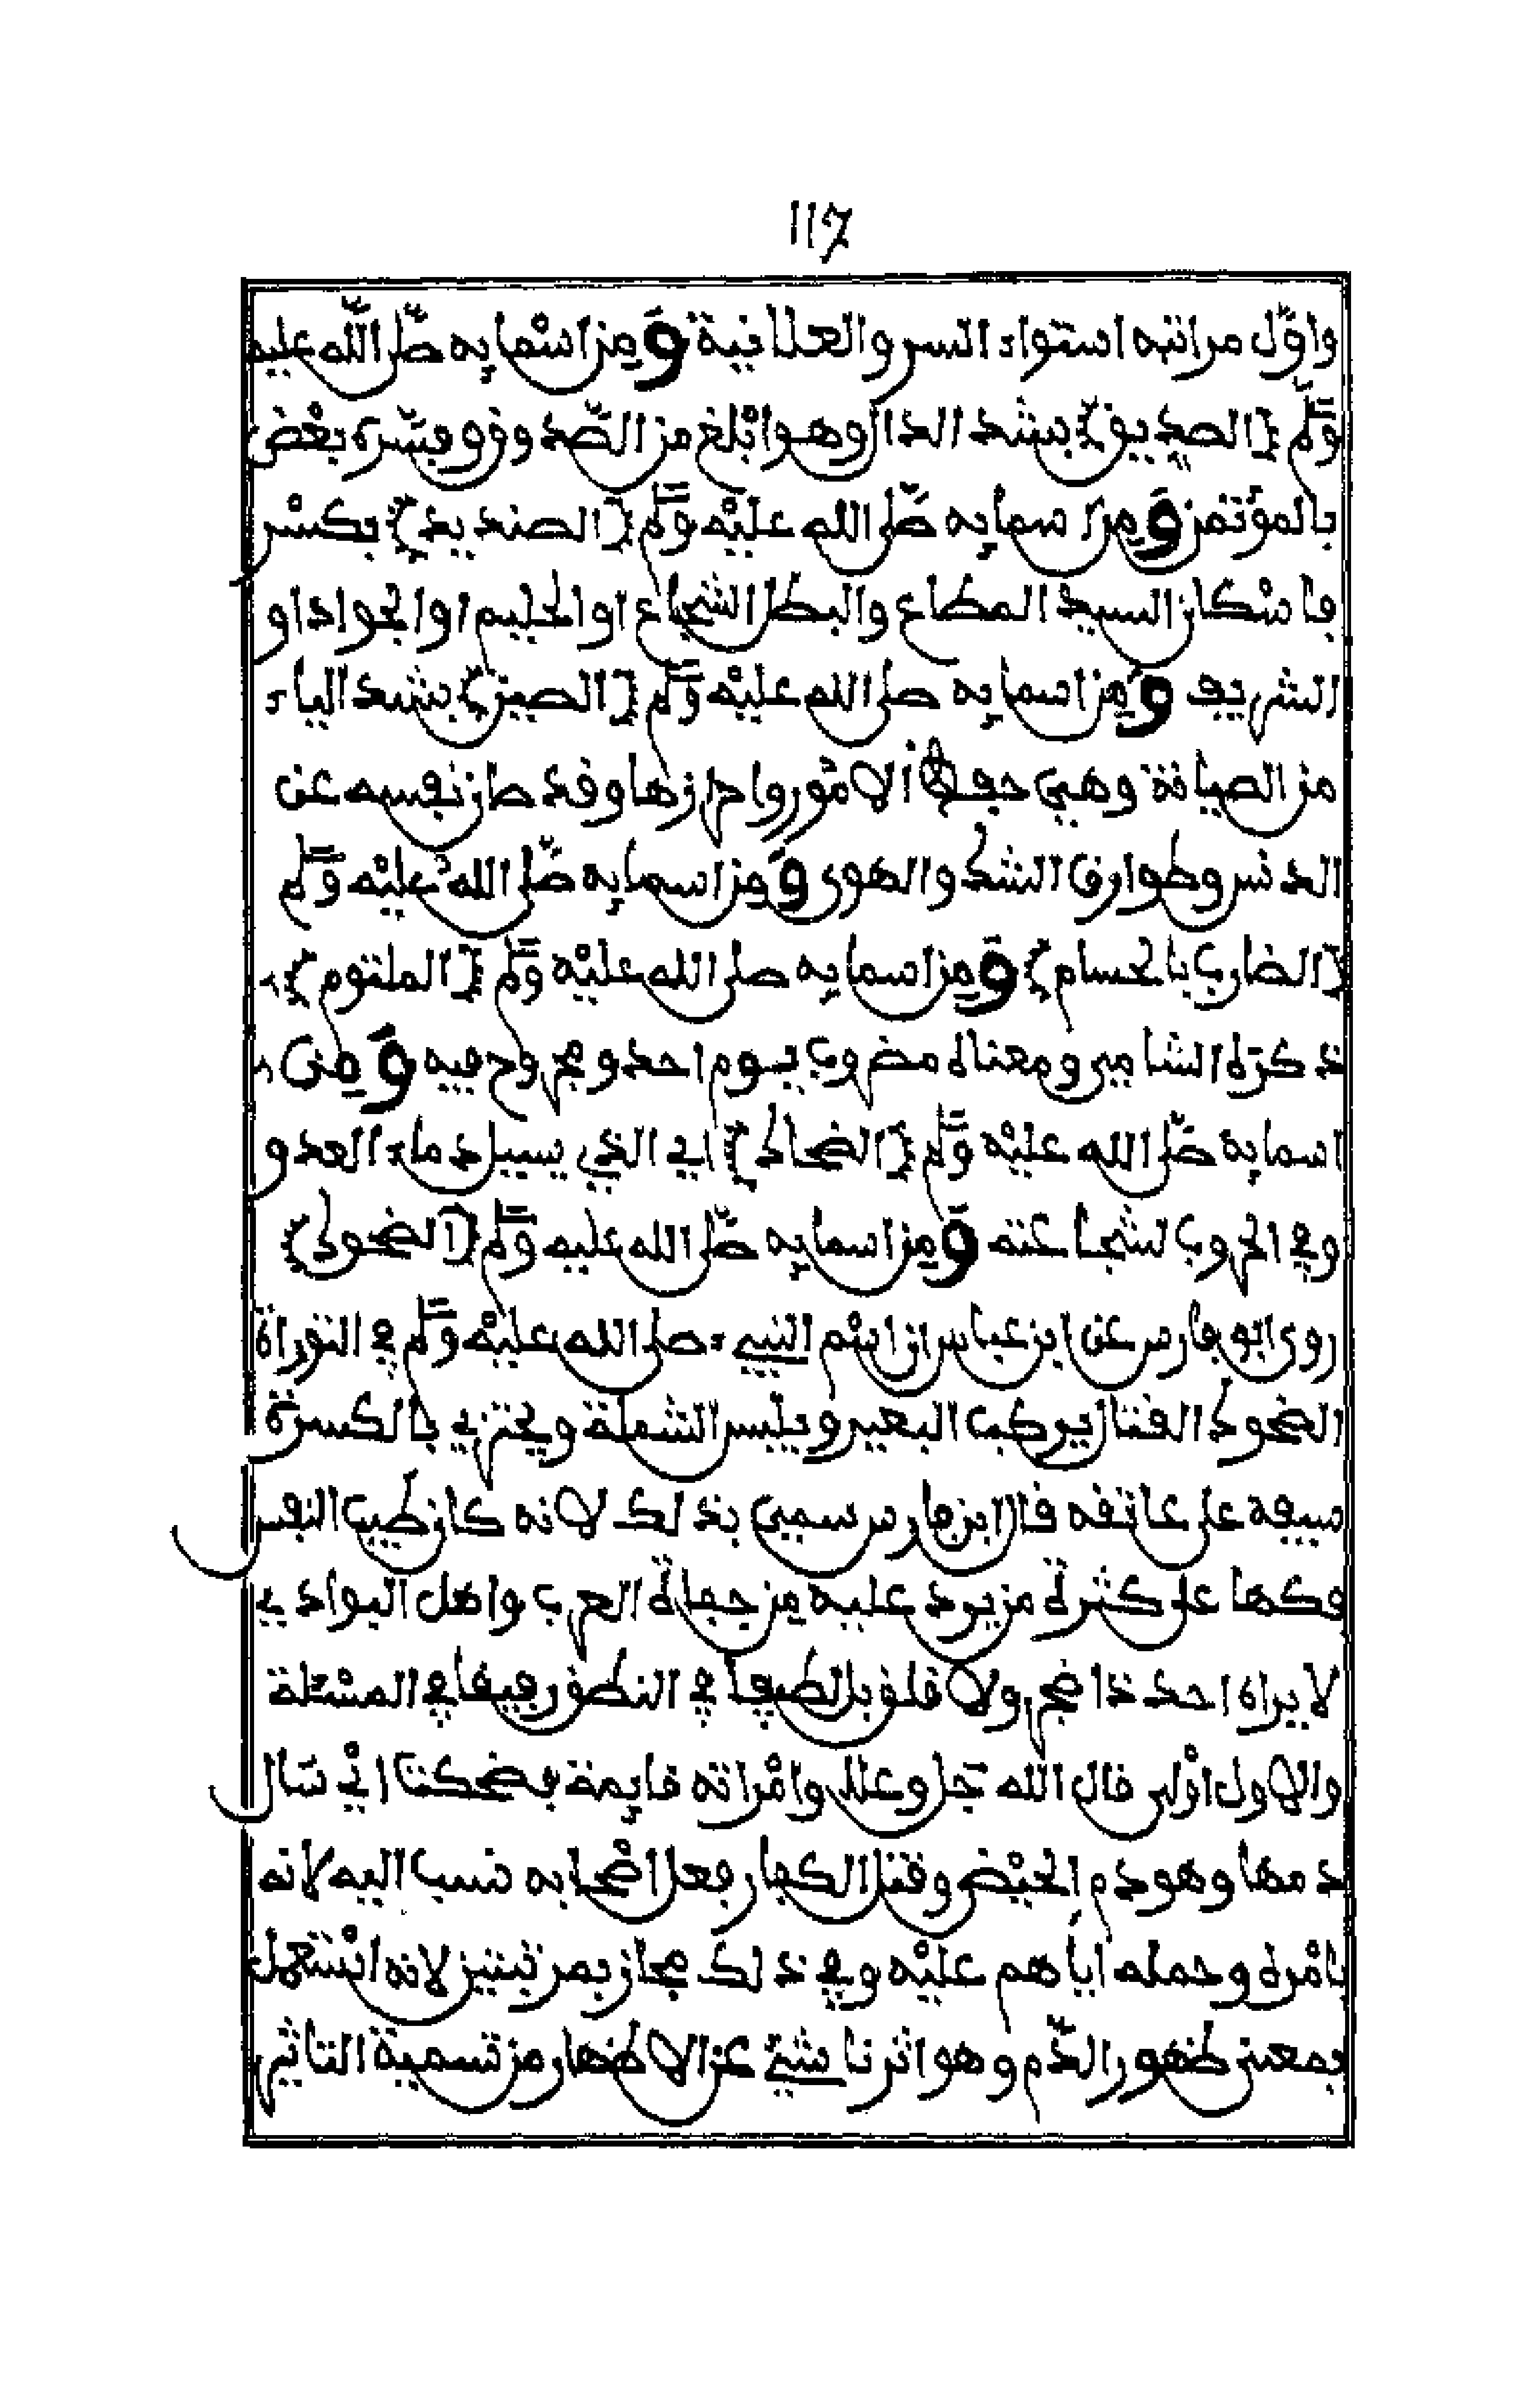 117
واوّل مراتبه استواء السر والعلانية وَمِن اسْمايِه صلّى اللّه عليه
وسلّم {الصدِيق} بشد الدال وهو ابْلغ من الصّدوق وفسّره بعْض
بالمؤتمن وَمِن اسمايِه صلّى الله عليْه وسلّم {الصنديد} بكسْر
فاسْكان السيد المطاع والبطل الشجاع او الحليم او الجواد او
الشريف وَمِن اسمايِه صلى الله عليْه وسلّم {الصين} بشد الياء
من الصيانة وهي حفظ الامُور واحرازها وقد صان نفسه عن
الدنس وطوارق الشك والهوى وَمِن اسمايِه صلّى الله عليْه وسلّم
{الضارب بالحسام} وَمِن اسمايِه صلى الله عليْه وسلّم {الملثوم}
ذكرَه الشامي ومعناه مضروب يوم احد ومجروح فيه وَمِن
اسمايِه صلّى الله عليْه وسلّم {الضحاك} اي الذي يسيل دماء العدو
وفي الحروب لشجاعته وَمِن اسمايِه صلّى الله عليه وسلّم {الضحوك}
روى ابو فارس عن ابن عباس ان اسْم النبيء صلى الله عليْه وسلّم في التوراة
الضحوك القتال يركب البعير ويلبس الشملة ويجتزي بالكسرة
سيفه على عاتقه قال ابن فارس سمي بذلك لانه كان طيب النفس
فكها على كثرة من يرد عليه مِن جفاة العرب واهل البوادي
لا يراه احد ذا ضجر ولا قلق بل لطيفا في النطق رفيقا في المسْئلة
والاول اوْلى قال الله جَل وعلا وامْراته قايِمة فضحكت ايْ سَال
دمها وهو دم الحيْض وقتل الكفار فعل اصْحابه نسب اليه لانه
بامْره وحمله ايَاهم عليْه وفي ذلك مجاز بمرتبتين لانه اسْتعمل
بمعنى ظهور الدّم وهو اثر ناشئ عن الاظهار من تسمية التاثير